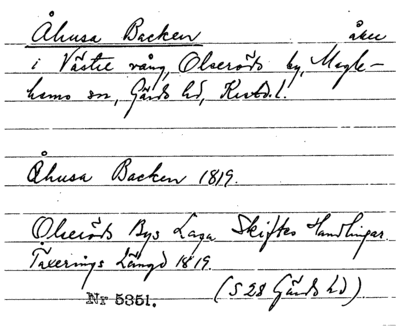 Åhusa Backen åker
i Västre vång, Olseröds by, Magle-
hems sn, Gärds hd, Krstd. l.
Åhusa Backen 1819.
Olseröds Bys Laga Skiftes Handlingar.
Taxerings Längd 1819.
Nr 5351. (S 28 Gärds hd)